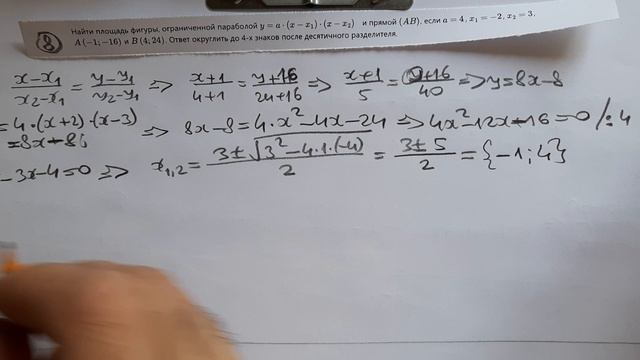 8 Найти площадь фигуры, ограниченной параболой y = a · (x − x₁) · (x − x₂) и прямой (AB), если a = 4, x₁ = −2, x₂ = 3,
A (−1; −16) и B (4; 24). Ответ округлить до 4-х знаков после десятичного разделителя.
(x−x₁)/(x₂−x₁) = (y−y₁)/(y₂−y₁) => (x+1)/(4+1) = (y+16)/(24+16) => (x+1)/5 = (y+16)/40 => y=8x−8
=4·(x+2)·(x−3) => 8x−8=4·x²−4x−24 => 4x²−12x−16=0 /:4
=8x−8
−3x−4=0 => x₁,₂ = (3±√(3²−4·1·(−4)))/2 = (3±5)/2 = {−1;4}